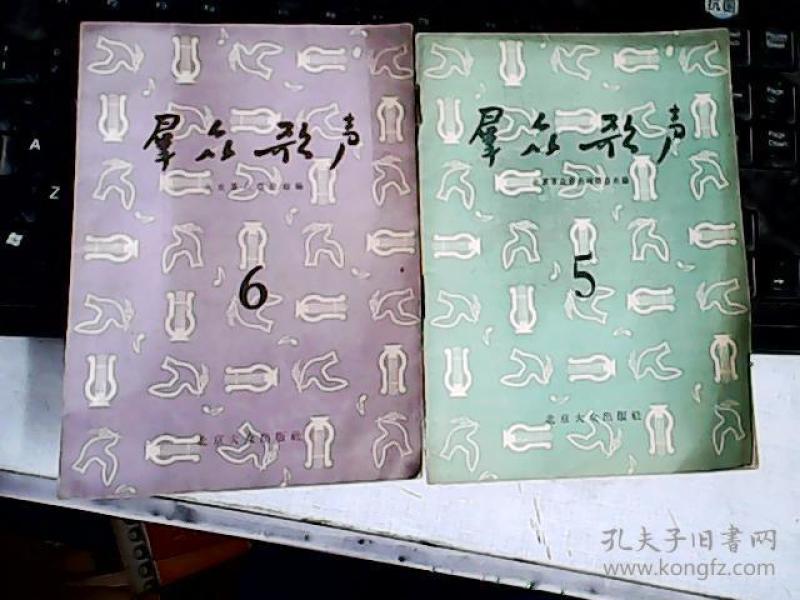 羣众歌声
6
北京大众出版社
羣众歌声
5
北京大众出版社
抗菌
A
孔夫子旧书网
www.kongfz.com